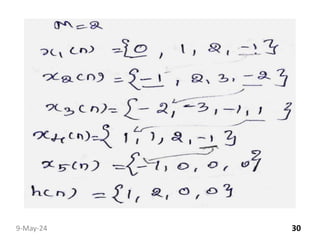 M=2
x₁(n) = {0, 1, 2, -1}
x₂(n) = {-1, 2, 3, -2}
x₃(n) = {-2, -3, -1, 1}
x₄(n) = {1, 1, 2, -1}
x₅(n) = {-1, 0, 0, 0}
h(n) = {1, 2, 0, 0}
9-May-24 30